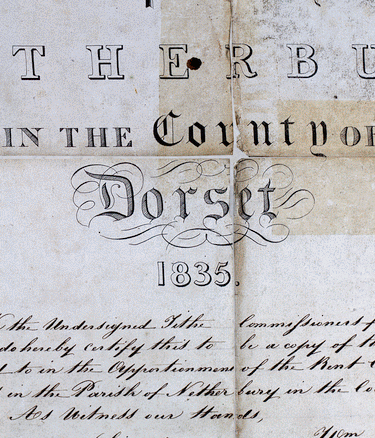 THERBU
IN THE County OF
Dorset
1835.
the Undersigned Tithe Commissioners
do hereby certify this to be a copy of th
to in the Apportionment of the Rent
in the Parish of Netherbury in the Co
As Witness our Hands,